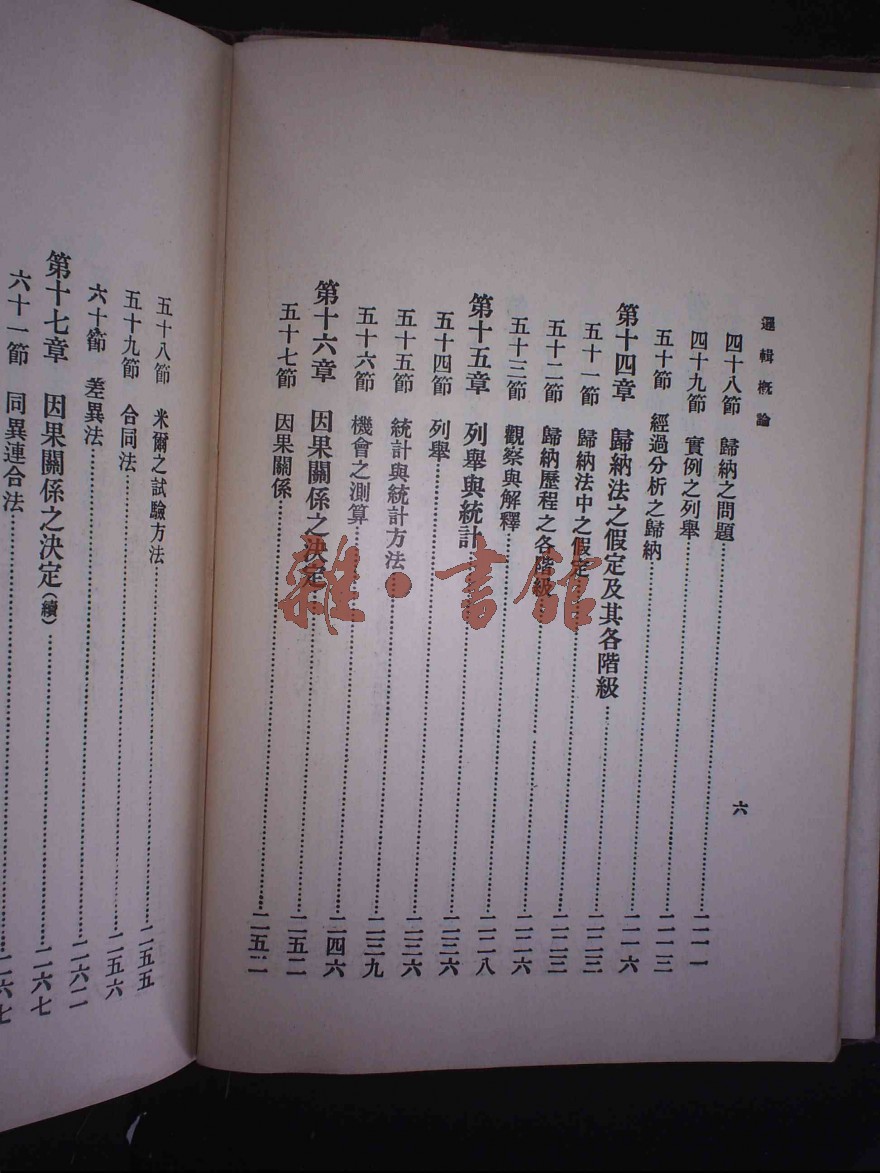 邏輯概論 六
四十八節 歸納之問題……二一一
四十九節 實例之列舉……二一三
五十節 經過分析之歸納……二一六
第十四章 歸納法之假定及其各階級……二二三
五十一節 歸納法中之假定……二二三
五十二節 歸納歷程之各階級……二二六
五十三節 觀察與解釋……二二八
第十五章 列舉與統計……二三六
五十四節 列舉……二三六
五十五節 統計與統計方法……二三九
五十六節 機會之測算……二四六
第十六章 因果關係之決定……二五二
五十七節 因果關係……二五二
五十八節 米爾之試驗方法……二五五
五十九節 合同法……二五六
六十節 差異法……二六二
第十七章 因果關係之決定(續)……二六七
六十一節 同異連合法……二六七
雜·書館